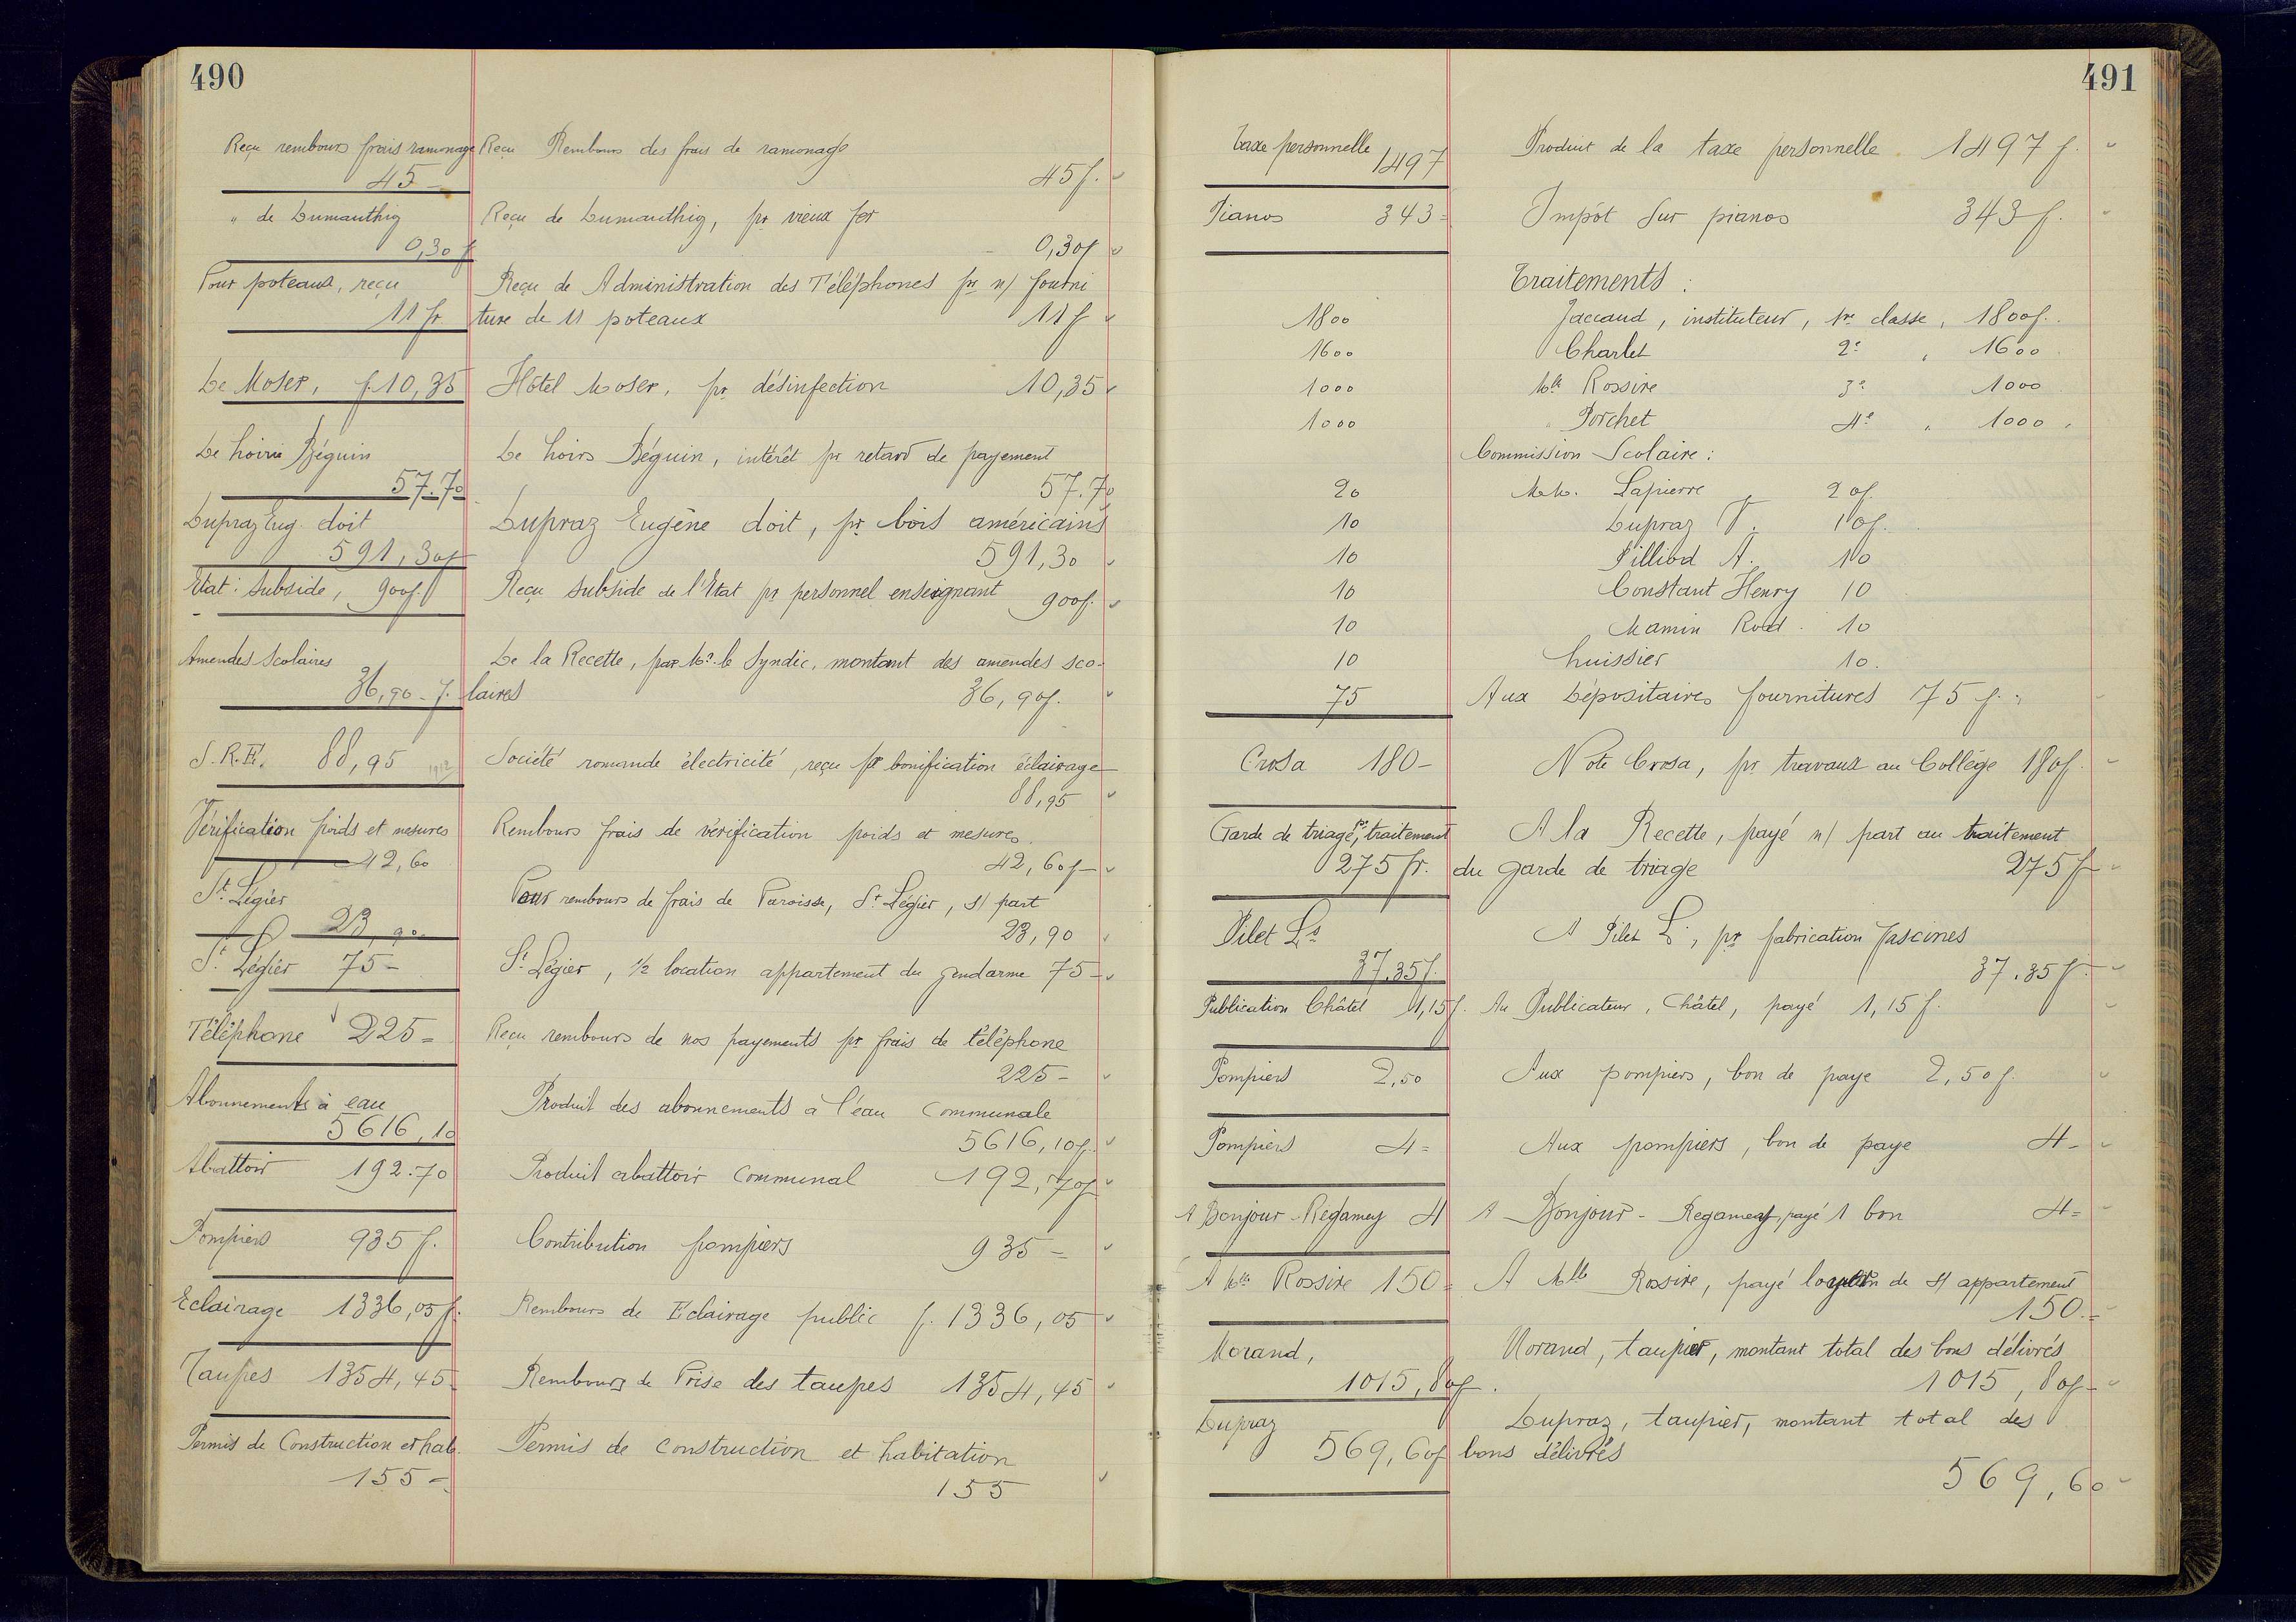 490
Reçu rembours frais ramonage
45 –
Reçu Rembours des frais de ramonage
45 f.
" de Dumauthig
0,30 f
Reçu de Dumauthig, pr vieux fer
0,30 f
Pour poteaux, reçu
11 fr
Reçu de Administration des Téléphones pr n/ fourni
ture de 11 poteaux 11 f
De Moser, f. 10,35
Hôtel Moser, pr désinfection 10,35
De hoirie Béguin
57.70
De hoirs Béguin, intérêt pr retard de payement
57.70
Dupraz Eug. doit
591,30 f
Dupraz Eugène doit, pr bois américains
591,30
Etat : Subside, 900 f.
Reçu subside de l'Etat pr personnel enseignant 900 f.
Amendes Scolaires
36,90 – f.
De la Recette, par Mr. le Syndic, montant des amendes sco-
laires 36,90 f.
S.R.E. 88,95 1912
Société romande électricité, reçu pr bonification éclairage
88,95
Vérification poids et mesures
42,60
Rembours frais de vérification poids et mesures.
42,60 f
St. Légier
23,90
Pour rembours de frais de Paroisse, St. Légier, s/ part
23,90
St. Légier 75 –
St. Légier, 1/2 location appartement du gendarme 75 –
Téléphone 225 =
Reçu rembours de nos payements pr frais de téléphone
225 –
Abonnements à eau
5616,10
Produit des abonnements à l'eau Communale
5616,10 f.
Abattoir 192.70
Produit abattoir Communal 192,70 f
Pompiers 935 f.
Contribution pompiers 935 –
Eclairage 1336,05 f.
Rembours de Eclairage public f. 1336,05
Taupes 1354,45
Rembours de Prise des taupes 1354,45
Permis de Construction et hab.
155 –
Permis de construction et habitation
155
491
Taxe personnelle 1497
Produit de la taxe personnelle 1497 f.
Pianos 343 =
Impôt sur pianos 343 f.
Traitements :
1800 Jaccaud, instituteur, 1re classe, 1800 f.
1600 Charlet 2e " 1600
1000 Mlle Rossire 3e 1000
1000 " Porchet 4e " 1000
Commission Scolaire :
20 M.M. Lapierre 20 f.
10 Dupraz V. 10 f.
10 Pilliod A. 10
10 Constant Henry 10
10 Mamin Rod. 10
10 huissier 10.
75 Aux Dépositaires fournitures 75 f.
Crosa 180 –
Note Crosa, pr travaux au Collège 180 f.
Garde de triage, pr traitement
275 fr.
A la Recette, payé n/ part au traitement
du garde de triage 275 f
Pilet Ls
37.35 f.
A Pilet L., pr fabrication fascines
37.35 f.
Publication Châtel 1,15 f.
Au Publicateur, Châtel, payé 1,15 f.
Pompiers 2,50
Aux pompiers, bon de paye 2,50 f.
Pompiers 4 =
Aux pompiers, bon de paye 4 –
A Bonjour-Regamey 4
A Bonjour-Regamey, payé 1 bon 4 =
A Mlle Rossire 150 =
A Mlle Rossire, payé de s/ appartement
150. =
Morand,
1015,80 f.
Morand, taupier, montant total des bons délivrés
1015,80 f
Dupraz
569,60 f
Dupraz, taupier, montant total des
bons délivrés
569,60